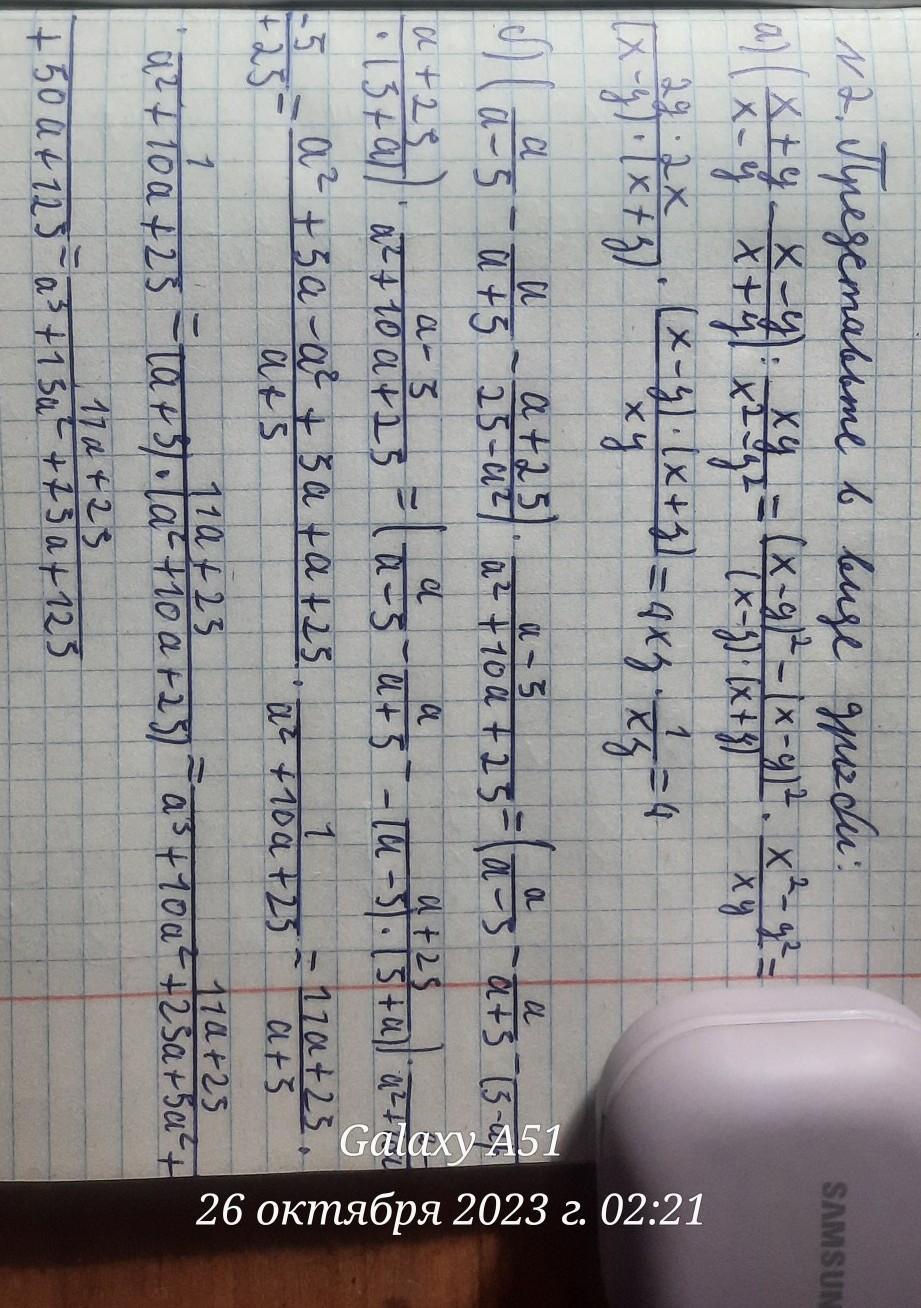 N 2. Представьте в виде дроби:
а) ( (x+y)/(x-y) - (x-y)/(x+y) ) : xy/(x²-y²) = ((x-y)² - (x-y)²)/((x-y)·(x+y)) · (x²-y²)/xy =
(2y·2x)/((x-y)·(x+y)) · ((x-y)·(x+y))/xy = 4xy · 1/xy = 4
б) ( a/(a-5) - a/(a+5) - (a+25)/(25-a²) ) · (a-5)/(a²+10a+25) = ( a/(a-5) - a/(a+5) - (5-a)
(a+25)/(·(5+a)) ) · (a-5)/(a²+10a+25) = ( a/(a-5) - a/(a+5) - (a+25)/(-(a-5)·(5+a)) ) ·
-5/+25 = (a²+5a-a²+5a+a+25)/(a+5) · 1/(a²+10a+25) = (11a+25)/(a+5) ·
· 1/(a²+10a+25) = (11a+25)/((a+5)·(a²+10a+25)) = (11a+25)/(a³+10a²+25a+5a²+
+50a+125) = (11a+25)/(a³+15a²+75a+125)
Galaxy A51
26 октября 2023 г. 02:21
SAMSUN